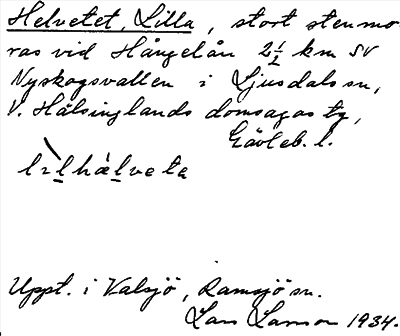 Helvetet, Lilla, stort stenmo
ras vid Hångelån 2½ km SV
Nyskogsvallen i Ljusdals sn,
V. Hälsinglands domsagas tg,
Gävleb. l.
lìlhǽlveta
Uppt. i Valsjö, Ramsjö sn.
Lars Larsson 1934.